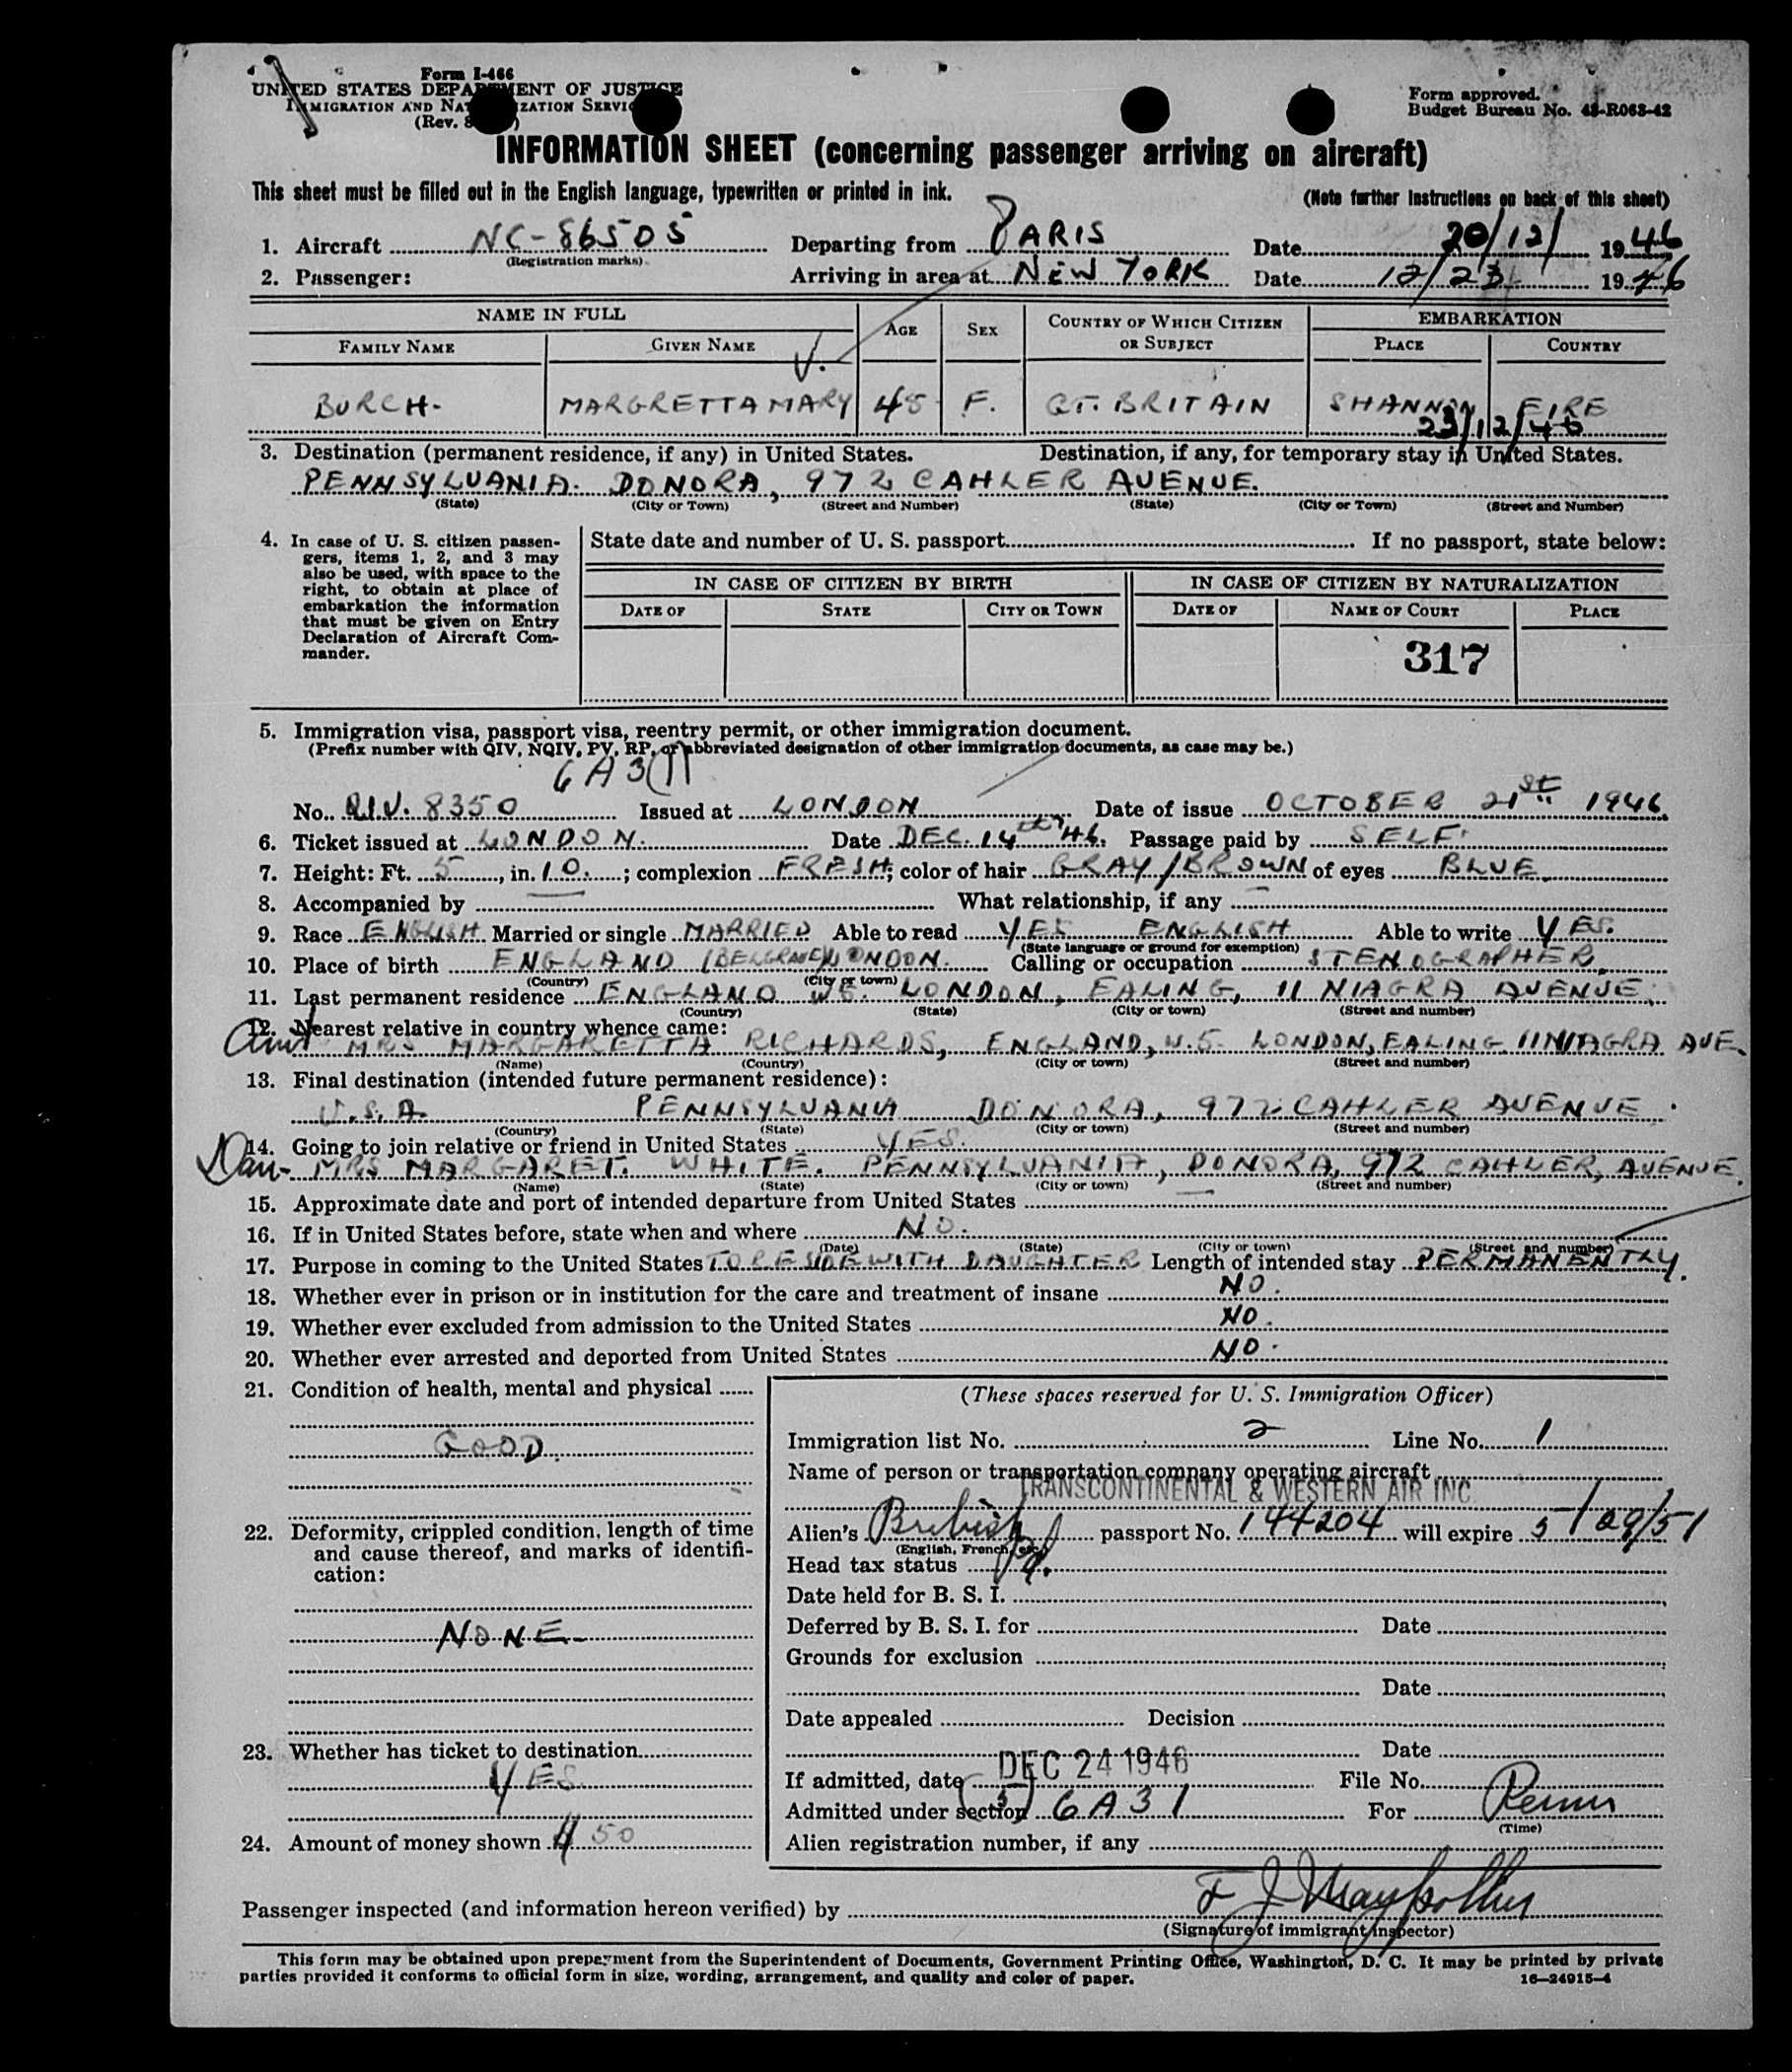 Form I-466
UNITED STATES DEPARTMENT OF JUSTICE
IMMIGRATION AND NATURALIZATION SERVICE
(Rev.
Form approved.
Budget Bureau No. 43-R063-42
INFORMATION SHEET (concerning passenger arriving on aircraft)
This sheet must be filled out in the English language, typewritten or printed in ink.
(Note further instructions on back of this sheet)
1. Aircraft NC-86505 Departing from PARIS Date 20/12/ 1946
(Registration marks)
2. Passenger: Arriving in area at NEW YORK Date 12/23 1946
NAME IN FULL AGE SEX COUNTRY OF WHICH CITIZEN OR SUBJECT EMBARKATION
FAMILY NAME GIVEN NAME PLACE COUNTRY
BURCH. MARGRETTA MARY 48 F. GT. BRITAIN SHANNON EIRE
23/12/46
3. Destination (permanent residence, if any) in United States. Destination, if any, for temporary stay in United States.
PENNSYLVANIA. DONORA, 972 CAHLER AVENUE.
(State) (City or Town) (Street and Number) (State) (City or Town) (Street and Number)
4. In case of U. S. citizen passengers, items 1, 2, and 3 may also be used, with space to the right, to obtain at place of embarkation the information that must be given on Entry Declaration of Aircraft Commander.
State date and number of U. S. passport If no passport, state below:
IN CASE OF CITIZEN BY BIRTH IN CASE OF CITIZEN BY NATURALIZATION
DATE OF STATE CITY OR TOWN DATE OF NAME OF COURT PLACE
317
5. Immigration visa, passport visa, reentry permit, or other immigration document.
(Prefix number with QIV, NQIV, PV, RP, or abbreviated designation of other immigration documents, as case may be.)
6A3(1)
No. QIV. 8350 Issued at LONDON Date of issue OCTOBER 21st 1946
6. Ticket issued at LONDON. Date DEC. 14th 46. Passage paid by SELF.
7. Height: Ft. 5, in. 10.; complexion FRESH; color of hair GRAY/BROWN of eyes BLUE.
8. Accompanied by — What relationship, if any —
9. Race ENGLISH Married or single MARRIED Able to read YES ENGLISH Able to write YES.
(State language or ground for exemption)
10. Place of birth ENGLAND (BELGRAVE) LONDON. Calling or occupation STENOGRAPHER.
(Country) (City or town)
11. Last permanent residence ENGLAND W5. LONDON, EALING, 11 NIAGRA AVENUE.
(Country) (State) (City or town) (Street and number)
12. Nearest relative in country whence came:
Aunt MRS MARGARETTA RICHARDS, ENGLAND, W.5. LONDON, EALING 11 NIAGRA AVE.
(Name) (Country) (City or town) (Street and number)
13. Final destination (intended future permanent residence):
U.S.A. PENNSYLVANIA DONORA, 972 CAHLER AVENUE.
(Country) (State) (City or town) (Street and number)
14. Going to join relative or friend in United States YES.
Dau- MRS MARGARET. WHITE. PENNSYLVANIA, DONORA, 972 CAHLER, AVENUE.
(Name) (State) (City or town) (Street and number)
15. Approximate date and port of intended departure from United States —
16. If in United States before, state when and where NO.
(Date) (State) (City or town) (Street and number)
17. Purpose in coming to the United States TO RESIDE WITH DAUGHTER Length of intended stay PERMANENTLY.
18. Whether ever in prison or in institution for the care and treatment of insane NO.
19. Whether ever excluded from admission to the United States NO.
20. Whether ever arrested and deported from United States NO.
21. Condition of health, mental and physical
GOOD.
22. Deformity, crippled condition, length of time and cause thereof, and marks of identification:
NONE.
23. Whether has ticket to destination
YES
24. Amount of money shown $ 50
(These spaces reserved for U. S. Immigration Officer)
Immigration list No. 2 Line No. 1
Name of person or transportation company operating aircraft
TRANSCONTINENTAL & WESTERN AIR INC.
Alien's British passport No. 144204 will expire 5/29/51
(English, French, etc.)
Head tax status Pd.
Date held for B. S. I.
Deferred by B. S. I. for Date
Grounds for exclusion
Date
Date appealed Decision
Date
If admitted, date DEC 24 1946 File No.
Admitted under section (3) 6A31 For Perm
(Time)
Alien registration number, if any
Passenger inspected (and information hereon verified) by F J
(Signature of immigrant inspector)
This form may be obtained upon prepayment from the Superintendent of Documents, Government Printing Office, Washington, D. C. It may be printed by private
parties provided it conforms to official form in size, wording, arrangement, and quality and color of paper. 16—24915-4